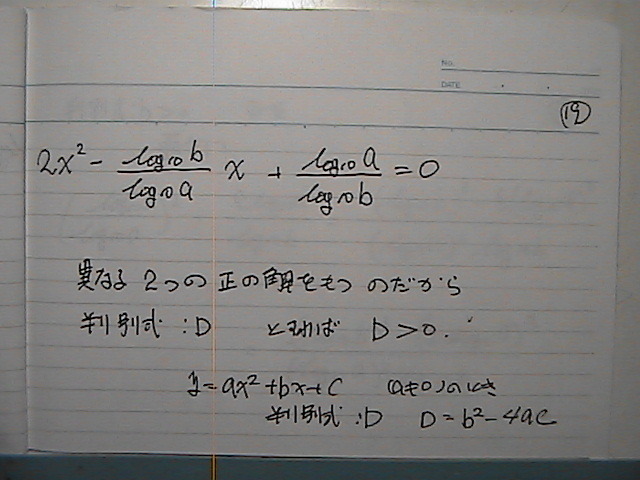 NO.
DATE
19
2x² - log₁₀b/log₁₀a x + log₁₀a/log₁₀b = 0
異なる 2つの 正の解をもつ のだから
判別式 : D とすれば D > 0.
y = ax² + bx + c (a≠0)のとき
判別式 : D D = b² - 4ac